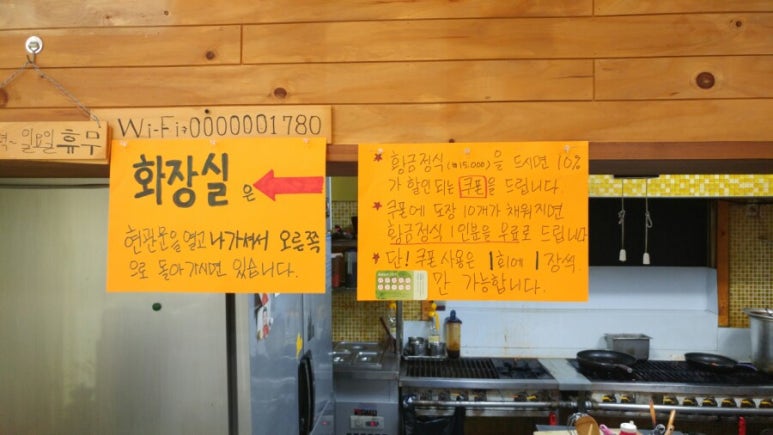 일요일 휴무
Wi-Fi:0000001780
화장실은
현관문을 열고 나가셔서 오른쪽
으로 돌아가시면 있습니다.
★ 황금정식(₩15,000)을 드시면 10%
가 할인되는 쿠폰을 드립니다.
★ 쿠폰에 도장 10개가 채워지면
황금정식 1인분을 무료로 드립니다
★ 단! 쿠폰 사용은 1회에 1장씩
만 가능합니다.